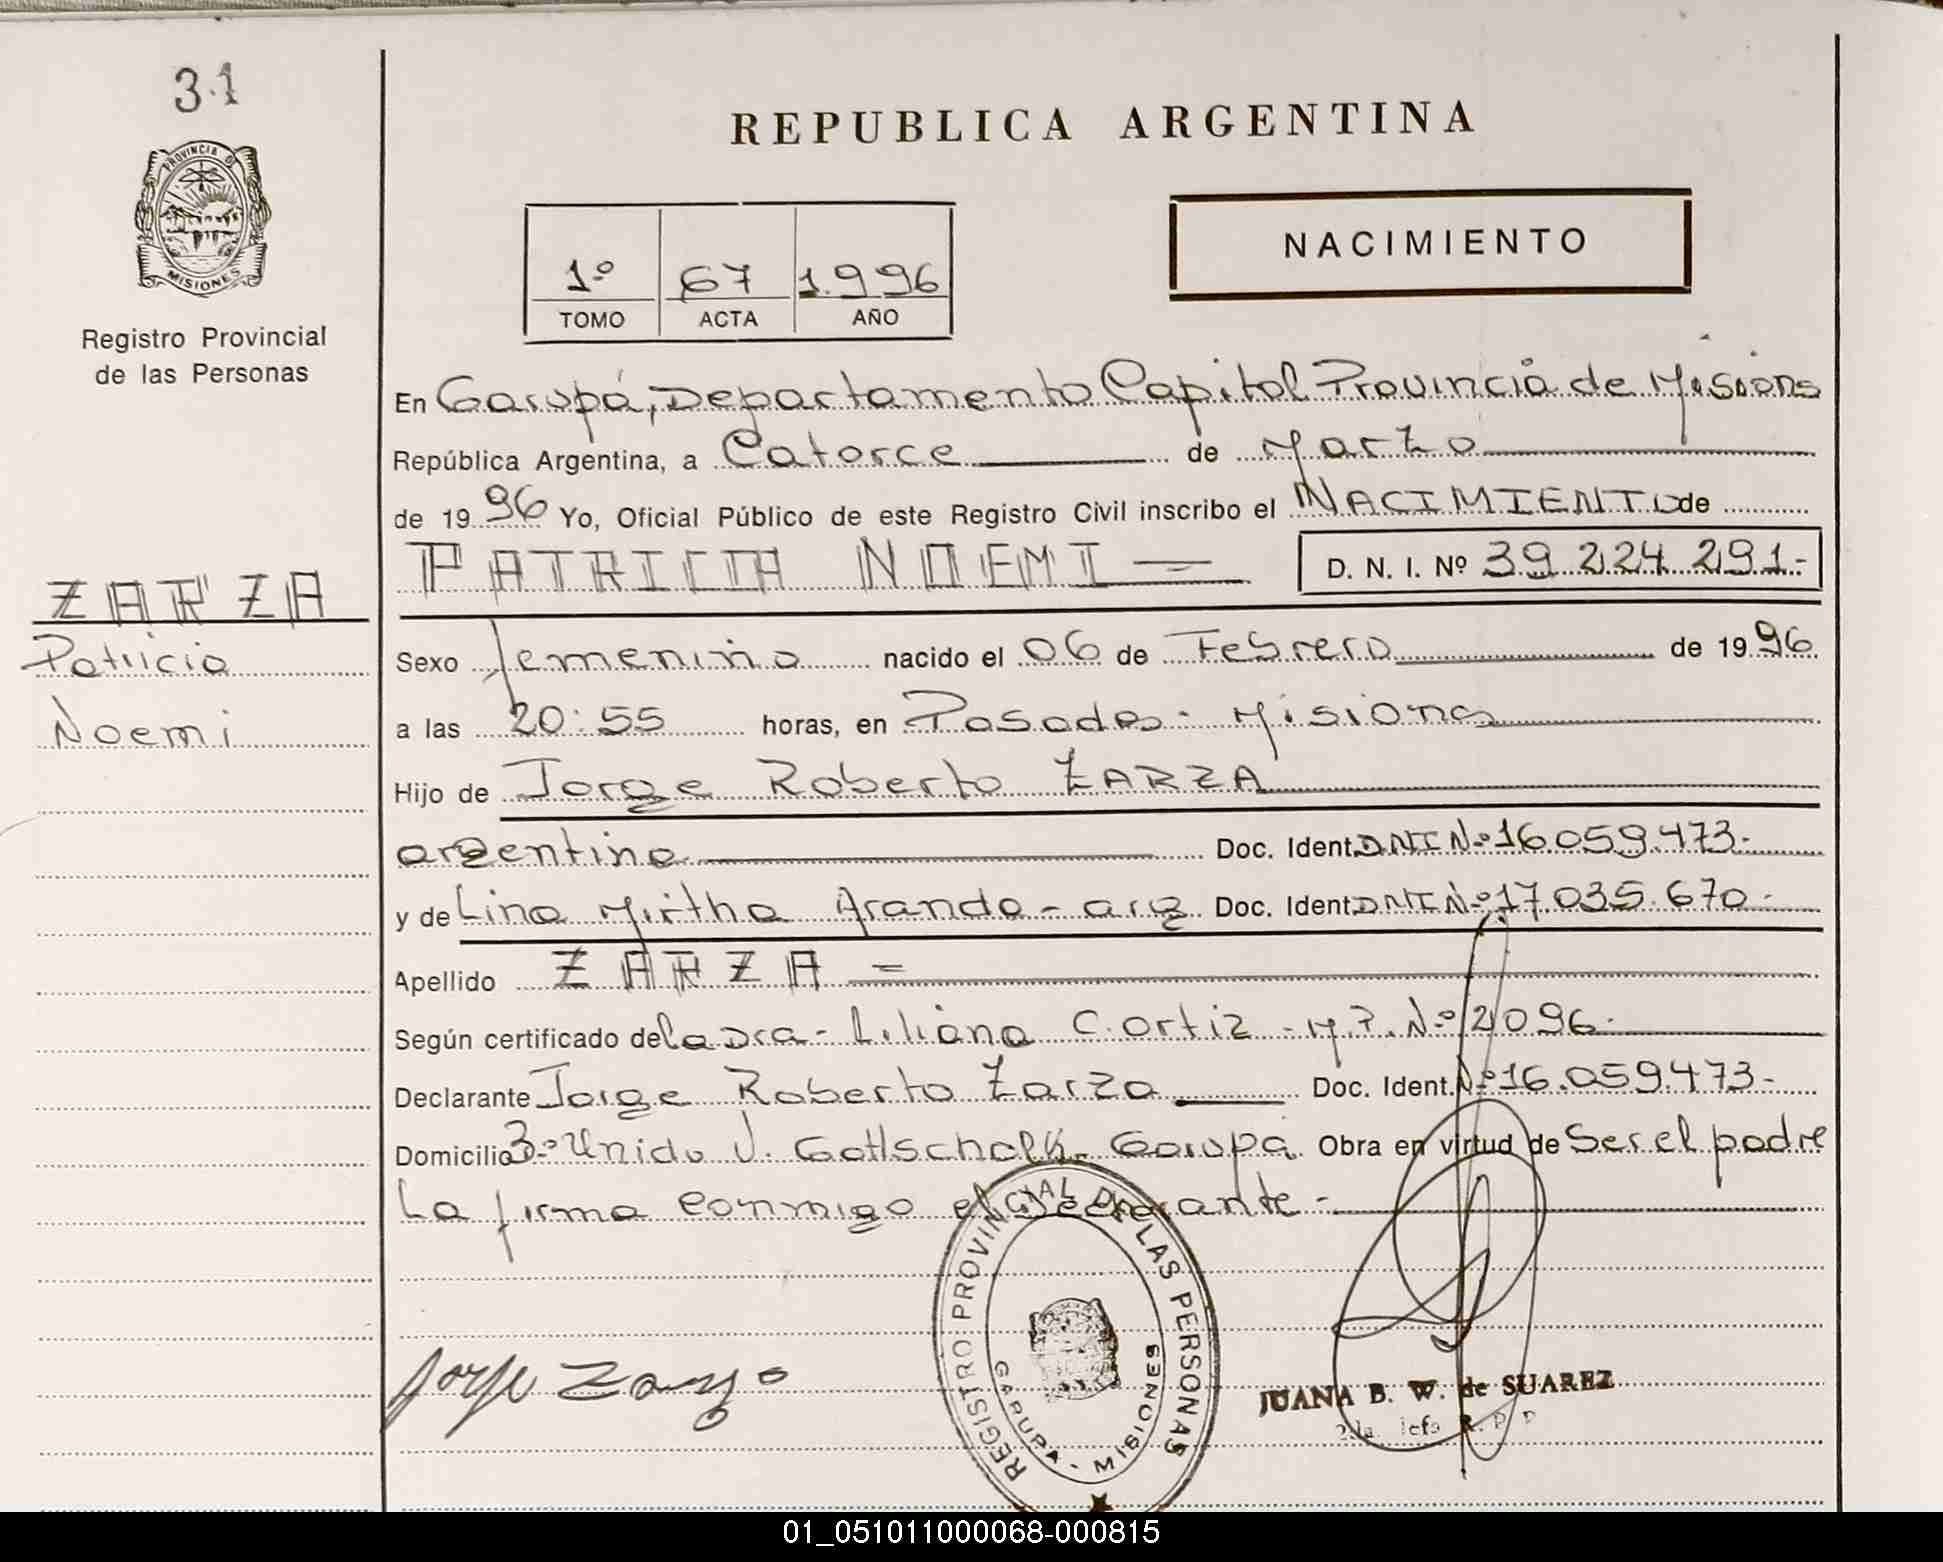 31
PROVINCIA D
MISIONES
Registro Provincial
de las Personas
REPUBLICA ARGENTINA
1º 67 1.996
TOMO ACTA AÑO
NACIMIENTO
En Garupá, Departamento Capital Provincia de Misiones
República Argentina, a Catorce de Marzo
de 1996 Yo, Oficial Público de este Registro Civil inscribo el NACIMIENTO de
PATRICIA NOEMI — D. N. I. Nº 39.224.291.-
ZARZA
Patricia
Noemi
Sexo femenino nacido el 06 de Febrero de 1996
a las 20:55 horas, en Posadas - Misiones
Hijo de Jorge Roberto ZARZA
argentino Doc. Ident. DNI Nº 16.059.473.-
y de Lina Mirtha Aranda - arg Doc. Ident. DNI Nº 17.035.670.-
Apellido ZARZA =
Según certificado de la Dra - Liliana C. Ortiz - M.P. Nº 2096.
Declarante Jorge Roberto Zarza Doc. Ident. Nº 16.059.473.-
Domicilio Bº Unido J. Gottschalk - Garupá. Obra en virtud de Ser el padre
La firma conmigo el declarante.-
Jorge Zarza
REGISTRO PROVINCIAL DE LAS PERSONAS
GARUPA - MISIONES
JUANA B. W. de SUAREZ
2da. Jefa R. P. P.
01_051011000068-000815